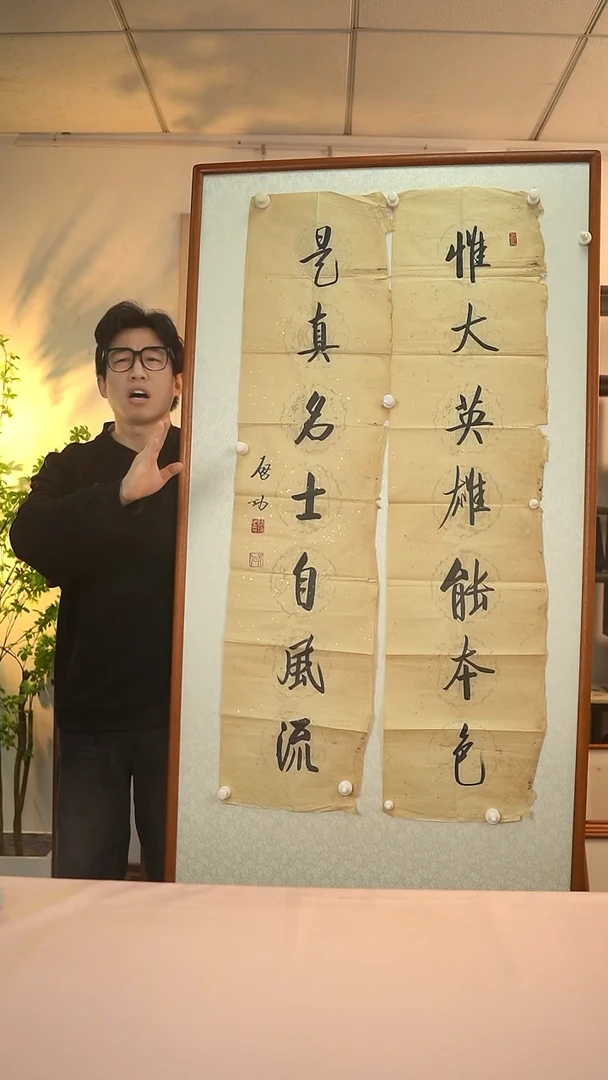 惟大英雄能本色
是真名士自風流
啓功